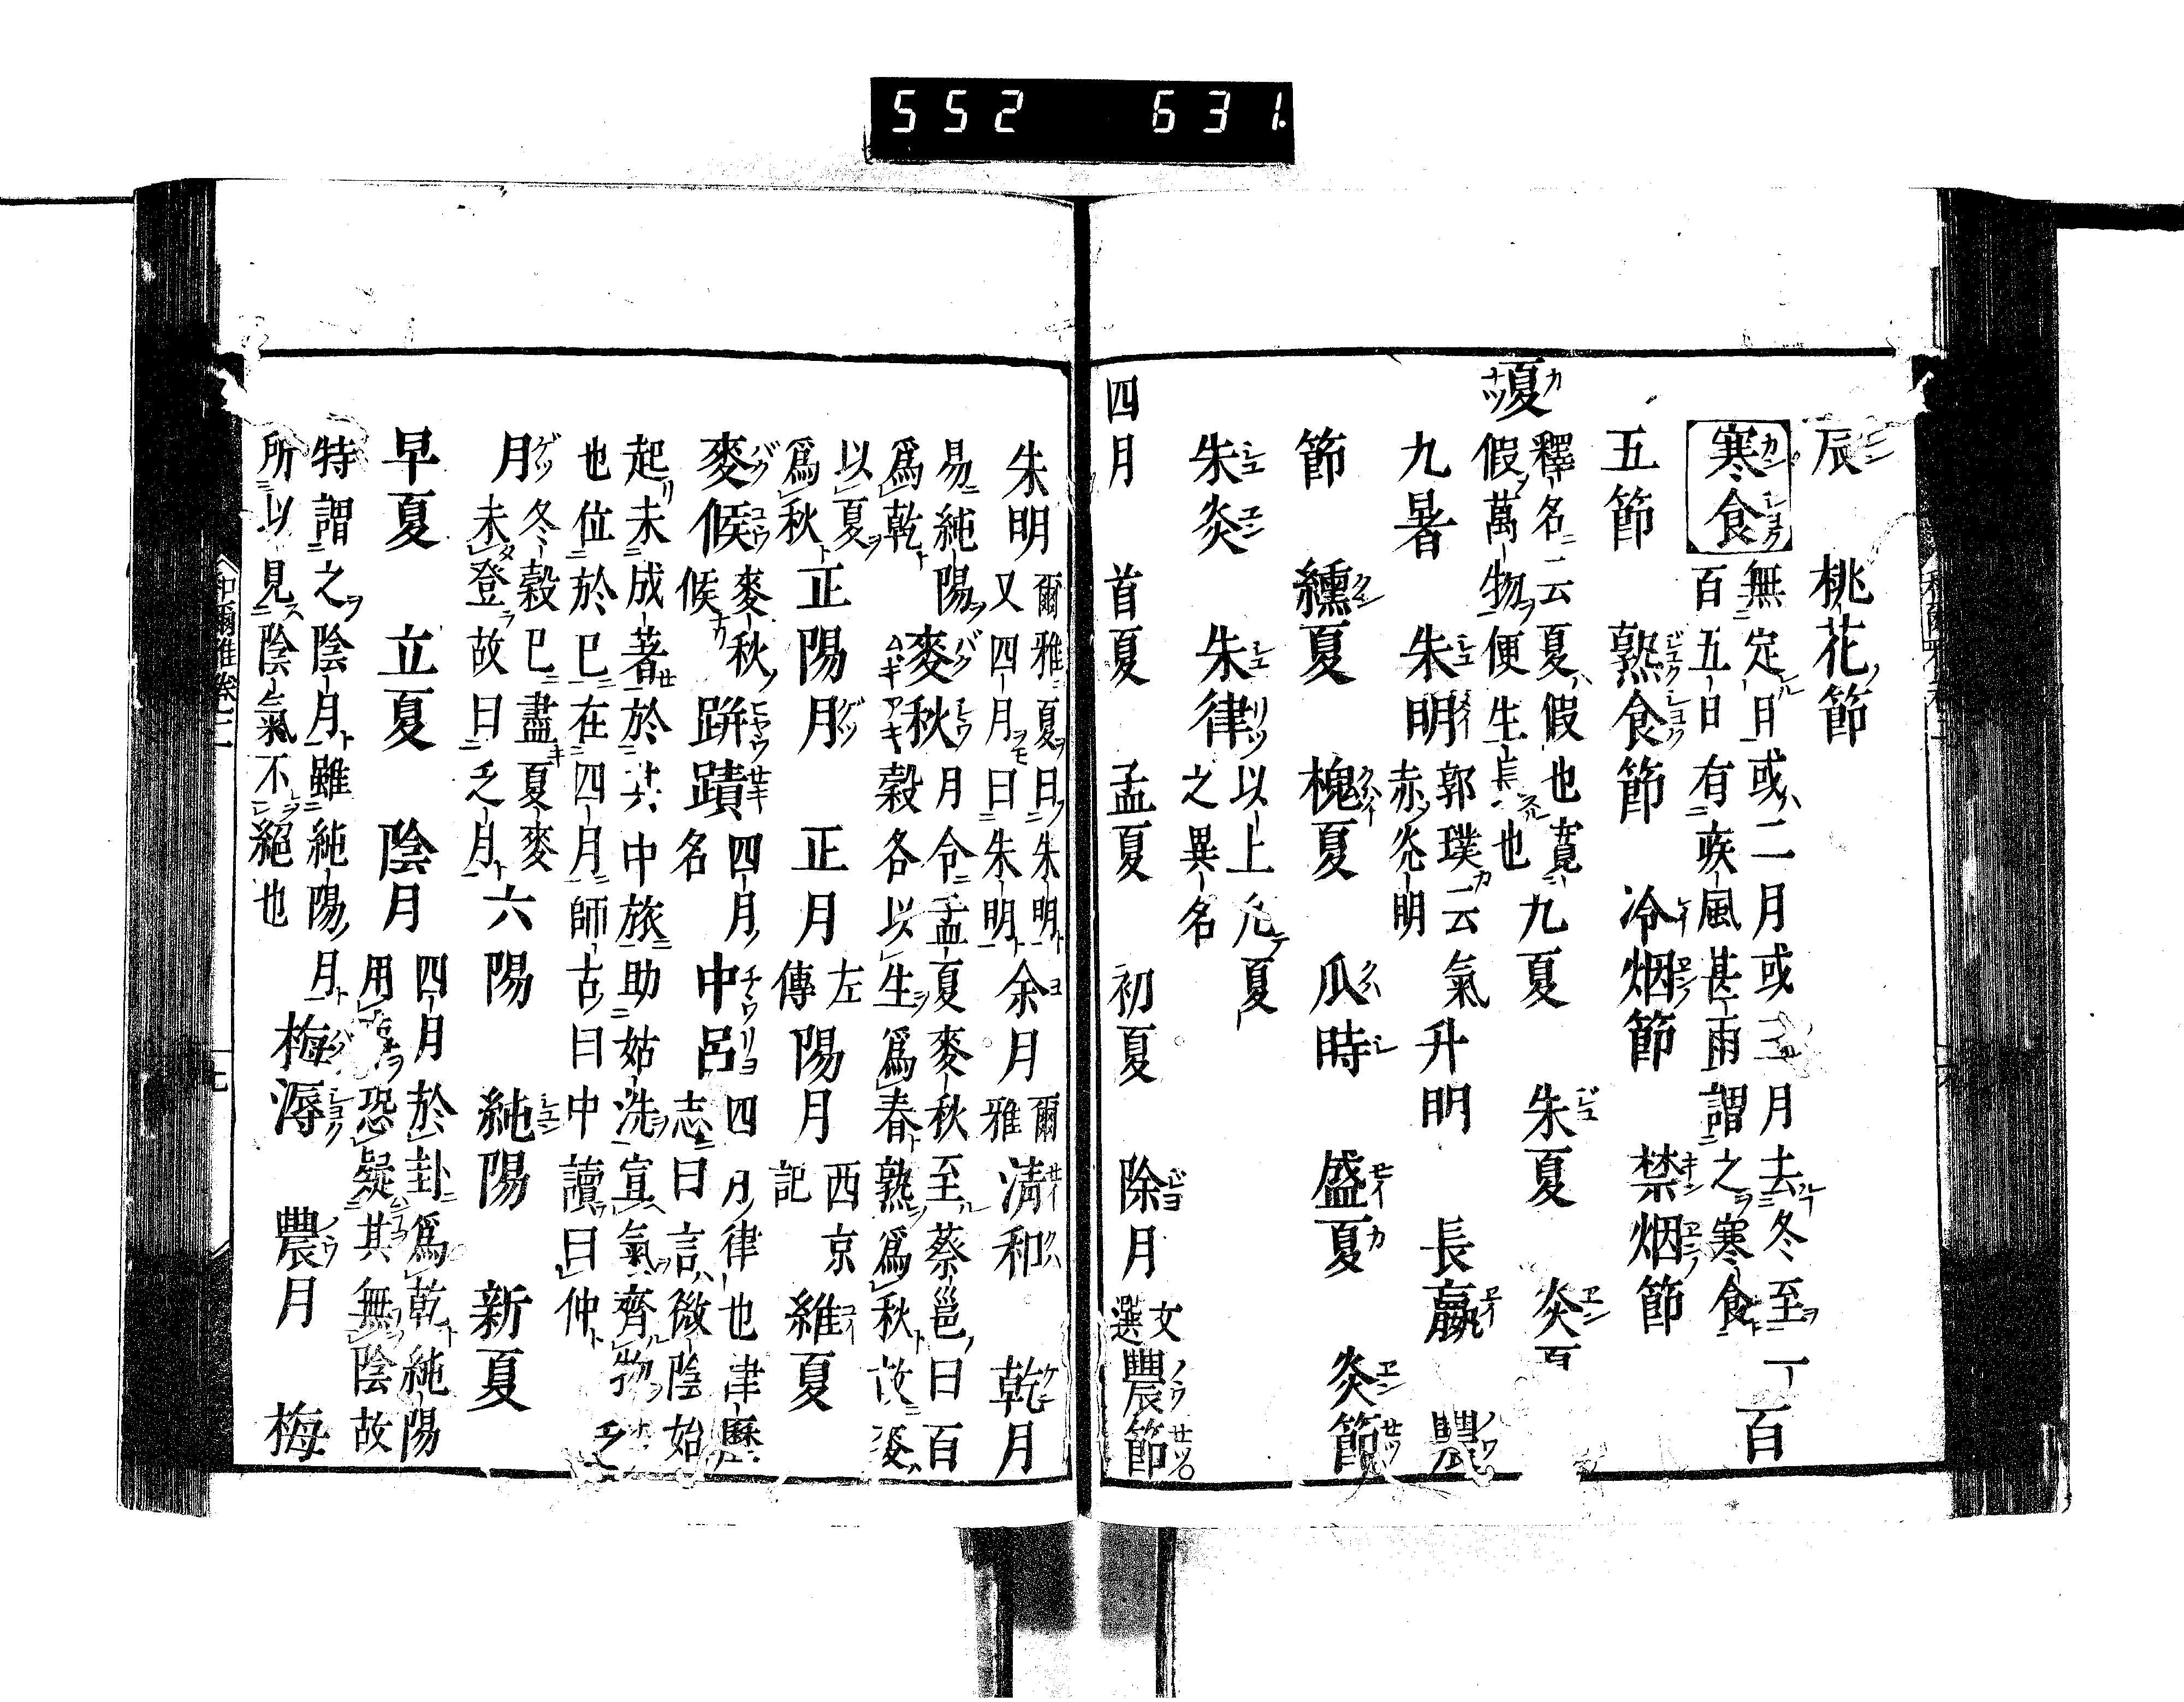 552 631
辰 桃花節
寒食 無定日或二月或三月去冬至一百
五日有疾風甚雨謂之寒食 百
五節 熟食節 冷烟節 禁烟節
夏 釋名云夏假也寬
假萬物便生長也 九夏 朱夏 炎夏
九暑 朱明 郭璞云氣
赤光明 升明 長嬴 農
節 纁夏 槐夏 瓜時 盛夏 炎節
朱炎 朱律 以上凡夏
之異名
四月 首夏 孟夏 初夏 除月 文選 農節
朱明 爾雅夏曰朱明
又四月曰朱明 余月 爾雅 清和 乾月
易純陽
爲乾 麥秋 月令孟夏麥秋至蔡邕曰百
穀各以生爲春熟爲秋故麥
以夏
爲秋 正陽月 正月 左傳 陽月 西京記 維夏
麥候 麥秋
候 跰蹟 四月
名 中呂 四月律也律曆
志曰言微陰始
起未成著於其中旅助姑洗宣氣齊物
也位於巳在四月師古曰中讀曰仲 乏
月 冬穀已盡夏麥
未登故曰乏月 六陽 純陽 新夏
早夏 立夏 陰月 四月於卦爲乾純陽
用事恐疑其無陰故
特謂之陰月雖純陽月
所以見陰氣不絕也 梅溽 農月 梅